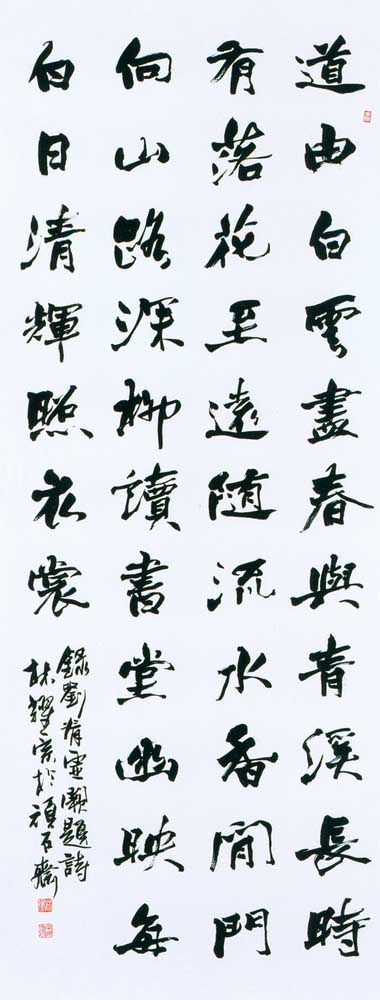 道由白雲盡春與青溪長時
有落花至遠隨流水香閒門
向山路深柳讀書堂幽映每
白日清輝照衣裳
錄劉眘虛闕題詩
林耀宗於頑石齋